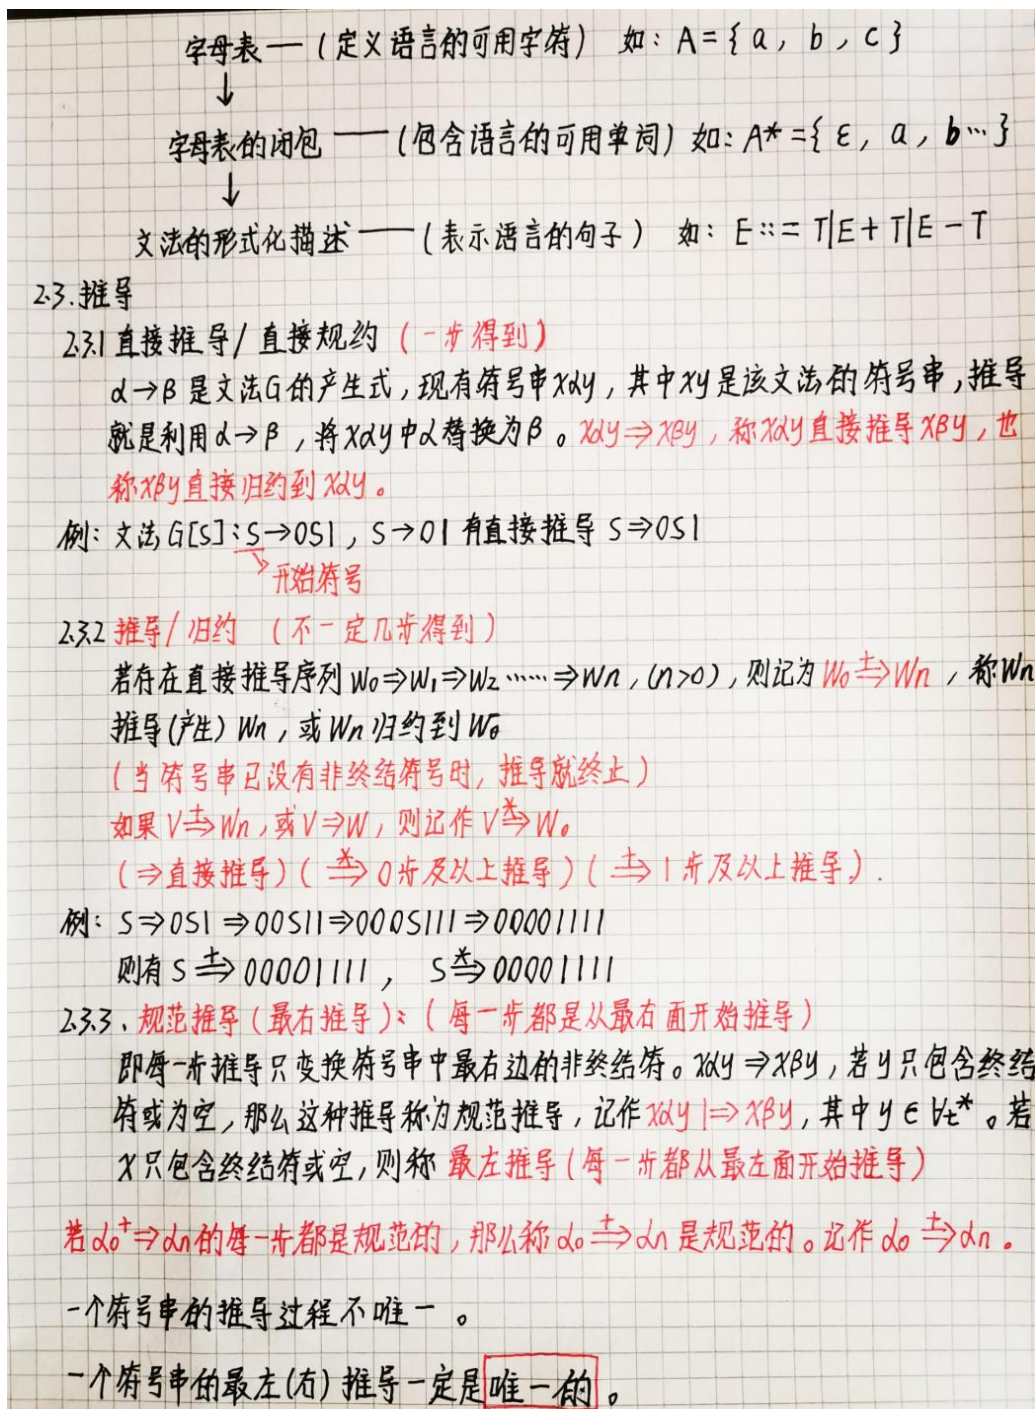 字母表—（定义语言的可用字符） 如：A={a，b，c}
↓
字母表的闭包——（包含语言的可用单词）如：A*={ε，a，b…}
↓
文法的形式化描述——（表示语言的句子） 如：E::=T|E+T|E-T
2.3.推导
2.3.1直接推导/直接规约（一步得到）
α→β是文法G的产生式，现有符号串xαy，其中xy是该文法的符号串，推导
就是利用α→β，将xαy中α替换为β。xαy⇒xβy，称xαy直接推导xβy，也
称xβy直接归约到xαy。
例：文法G[S]:S→0S1，S→01有直接推导S⇒0S1
开始符号
2.3.2推导/归约 （不一定几步得到）
若存在直接推导序列W₀⇒W₁⇒W₂……⇒Wn，(n>0)，则记为W₀+⇒Wn，称Wn
推导(产生)Wn，或Wn归约到W₀
（当符号串已没有非终结符号时，推导就终止）
如果V+⇒Wn，或V⇒W，则记作V*⇒W。
（⇒直接推导）（*⇒0步及以上推导）（+⇒1步及以上推导）.
例：S⇒0S1⇒00S11⇒000S111⇒00001111
则有S+⇒00001111， S*⇒00001111
2.3.3、规范推导（最右推导）：（每一步都是从最右面开始推导）
即每一步推导只变换符号串中最右边的非终结符。xαy⇒xβy，若y只包含终结
符或为空，那么这种推导称为规范推导，记作xαy|⇒xβy，其中y∈Vt*。若
x只包含终结符或空，则称 最左推导（每一步都从最左面开始推导）
若α₀+⇒αn的每一步都是规范的，那么称α₀+⇒αn是规范的。记作α₀+⇒αn。
一个符号串的推导过程不唯一。
一个符号串的最左(右)推导一定是唯一的。